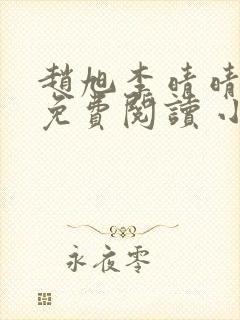 趙旭李晴晴
免費閱讀小
永夜零